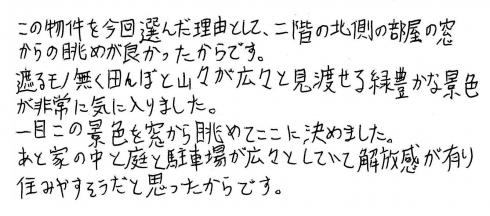 この物件を今回選んだ理由として、二階の北側の部屋の窓
からの眺めが良かったからです。
遮るモノ無く田んぼと山々が広々と見渡せる緑豊かな景色
が非常に気に入りました。
一目この景色を窓から眺めてここに決めました。
あと家の中と庭と駐車場が広々としていて解放感が有り
住みやすそうだと思ったからです。